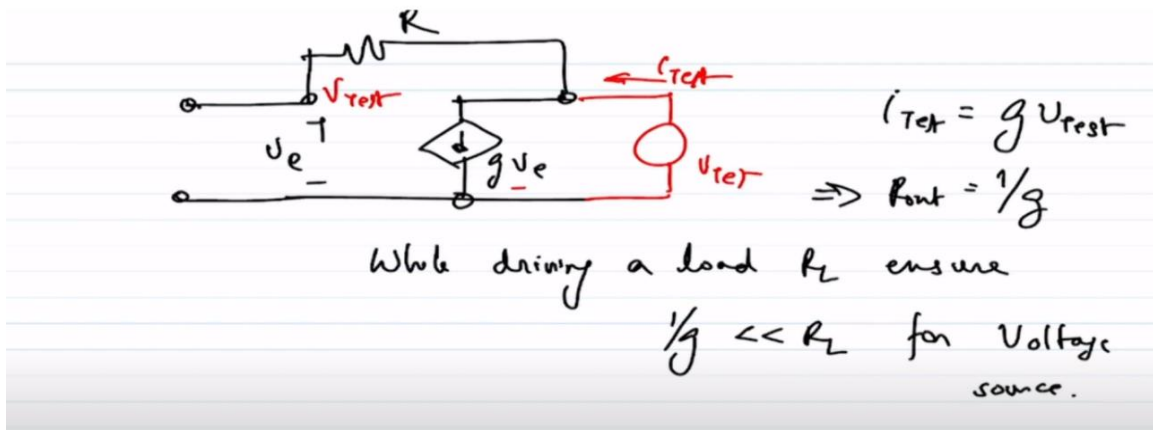 R
i Test
V Test
i Test = g v Test
v e
+
−
g v e
v Test
⇒ Rout = 1/g
While driving a load RL ensure
1/g << RL for Voltage
source.